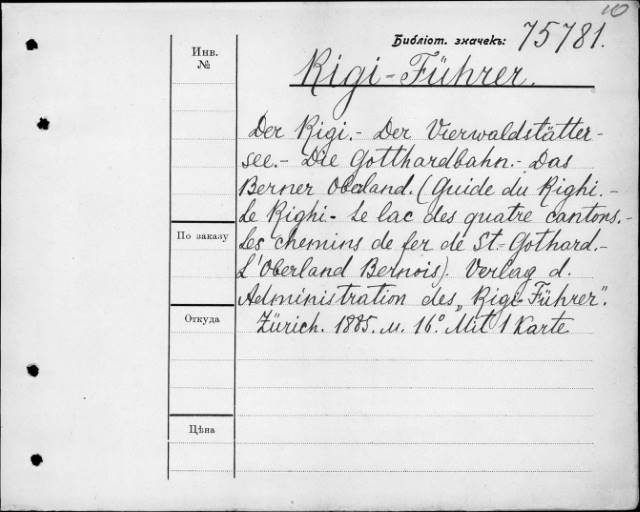 10
Библіот. значекъ: 75781.
Инв.
№
Rigi-Führer.
Der Rigi.- Der Vierwaldstätter-
see.- Die Gotthardbahn.- Das
Berner Oberland. (Guide du Righi.-
Le Righi.- Le lac des quatre cantons.-
Les chemins de fer de St.-Gothard.-
L'Oberland Bernois). Verlag d.
Administration des „Rigi-Führer".
Zürich. 1885. м. 16°. Mit 1 Karte
По заказу
Откуда
Цѣна